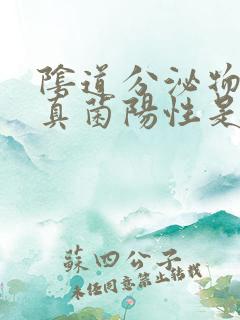 陰道分泌物
真菌陽性是
蘇四公子
未經同意禁止轉載